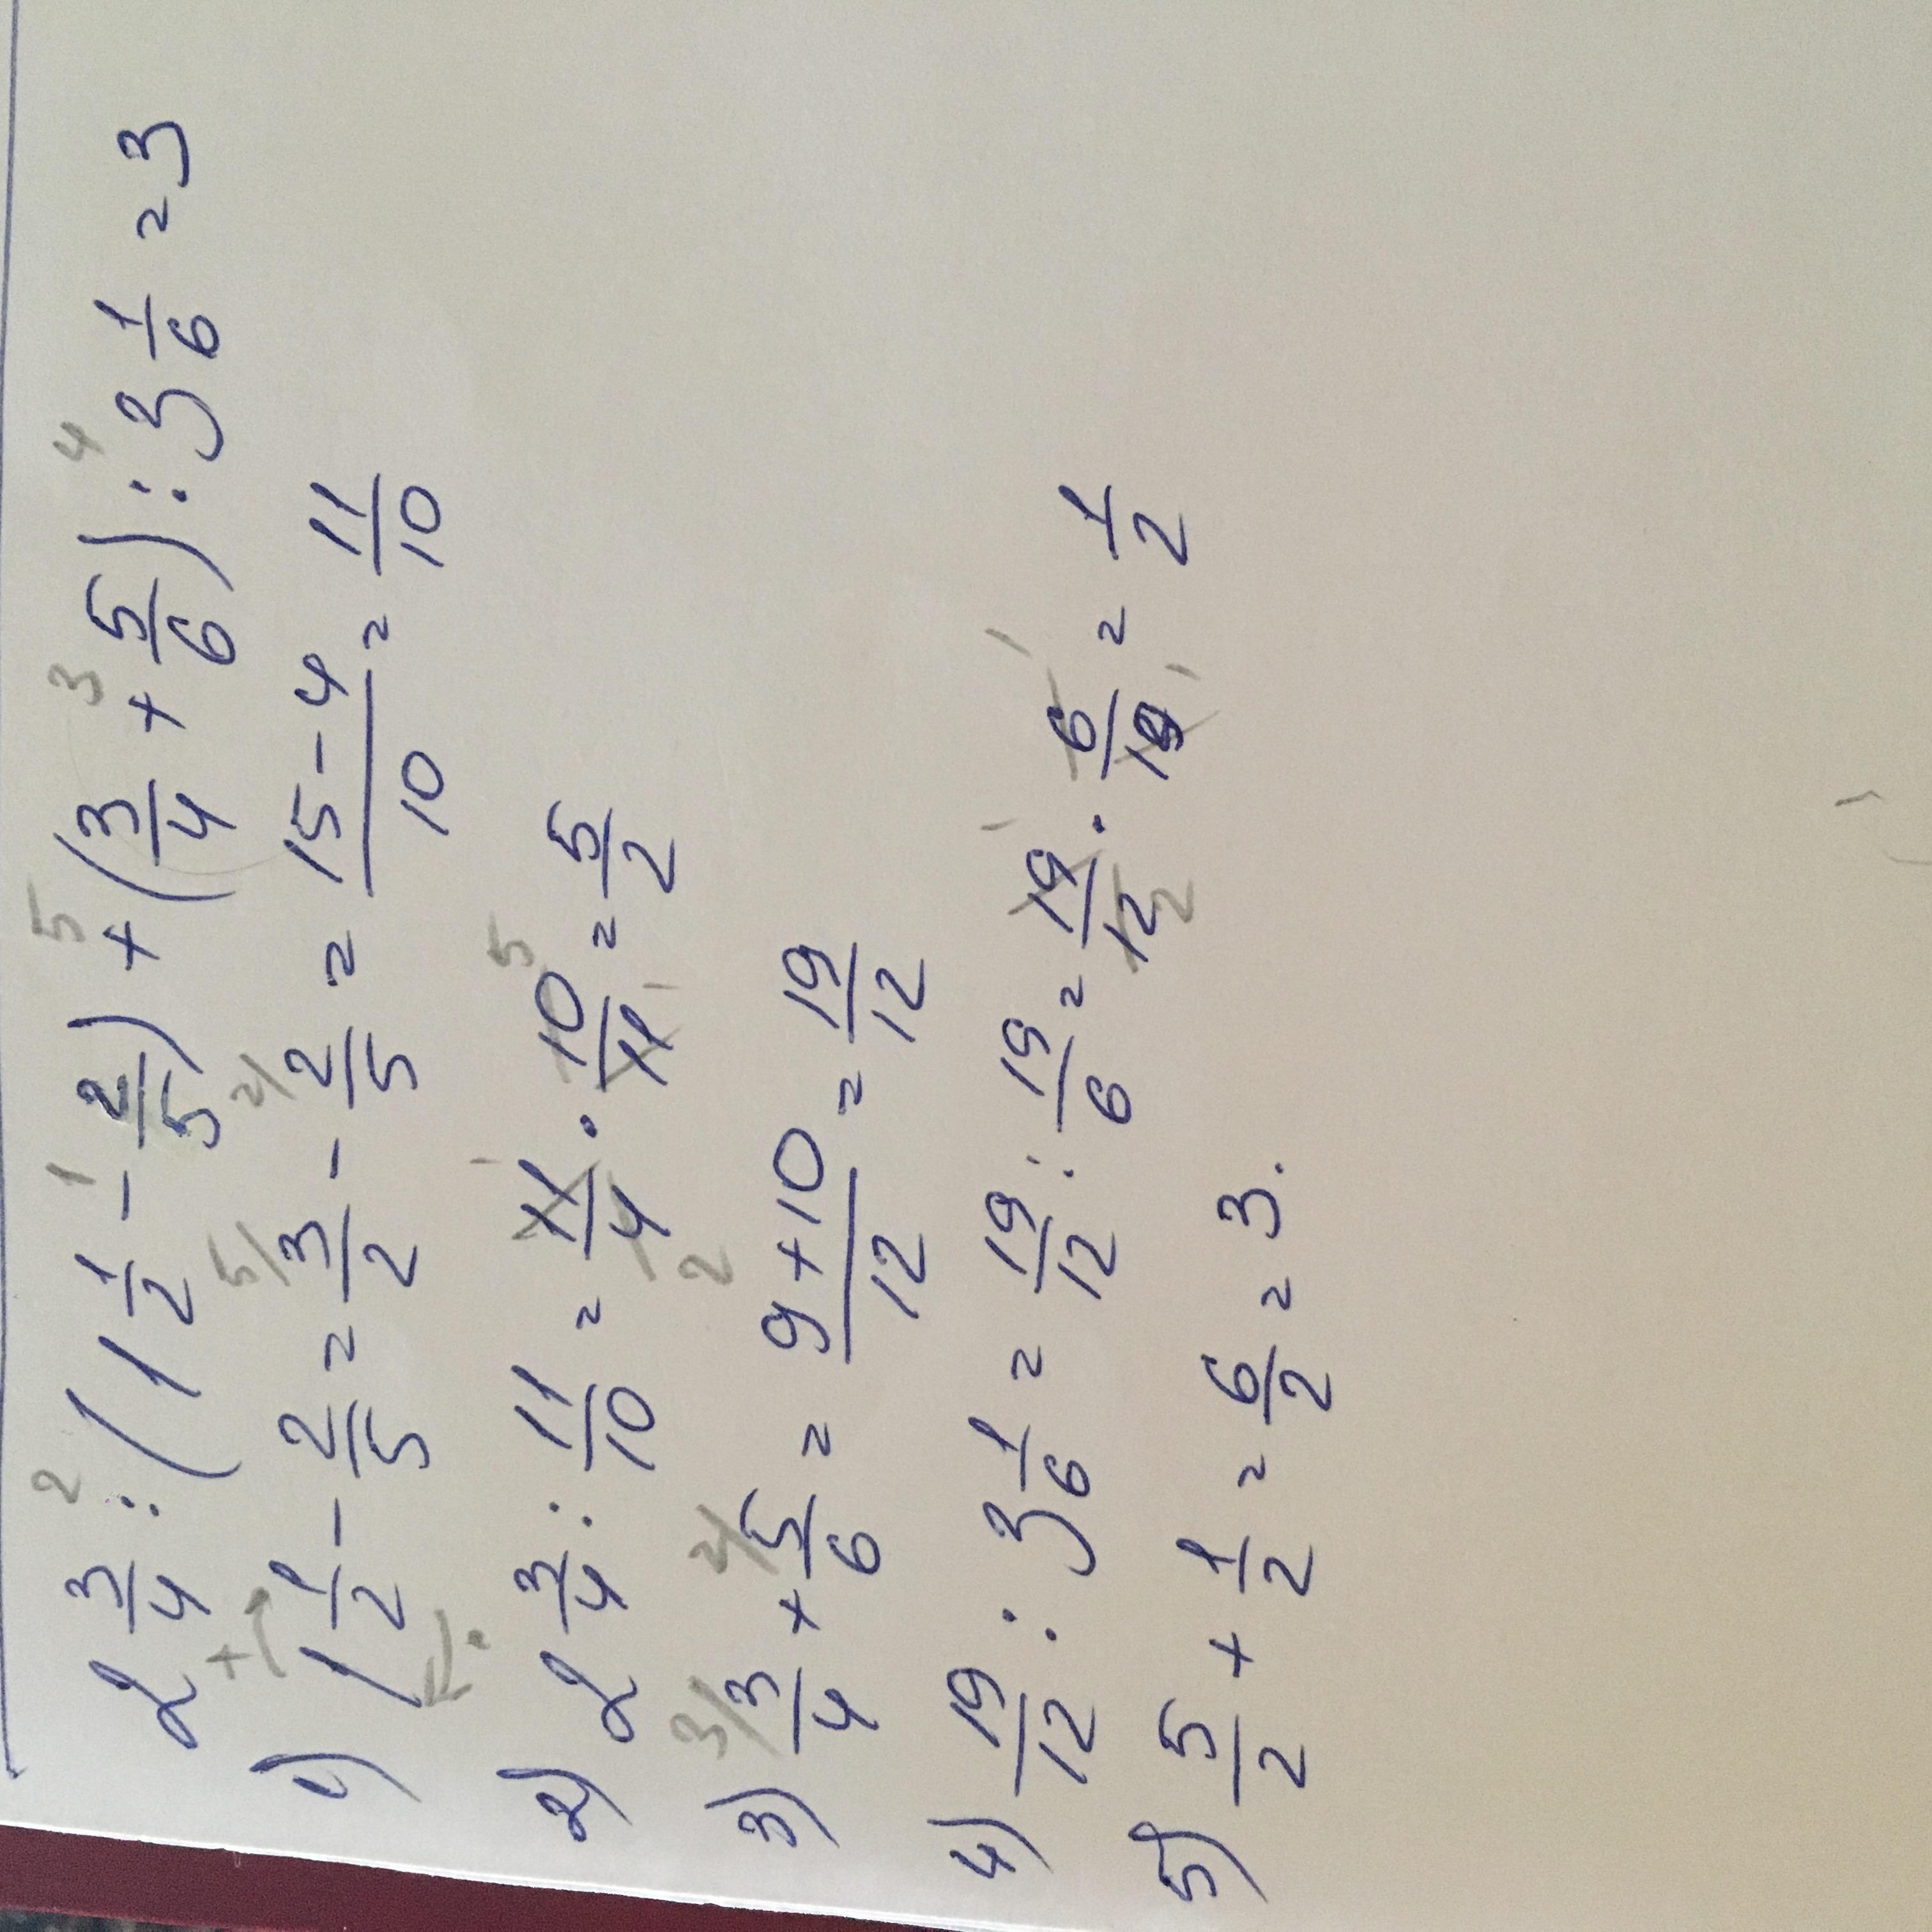 2 3/4 : (1 1/2 - 2/5) + (3/4 + 5/6) : 3 1/6 = 3
1) 1 1/2 - 2/5 = 3/2 - 2/5 = (15-4)/10 = 11/10
2) 2 3/4 : 11/10 = 11/4 · 10/11 = 5/2
3) 3/4 + 5/6 = (9+10)/12 = 19/12
4) 19/12 : 3 1/6 = 19/12 : 19/6 = 19/12 · 6/19 = 1/2
5) 5/2 + 1/2 = 6/2 = 3.